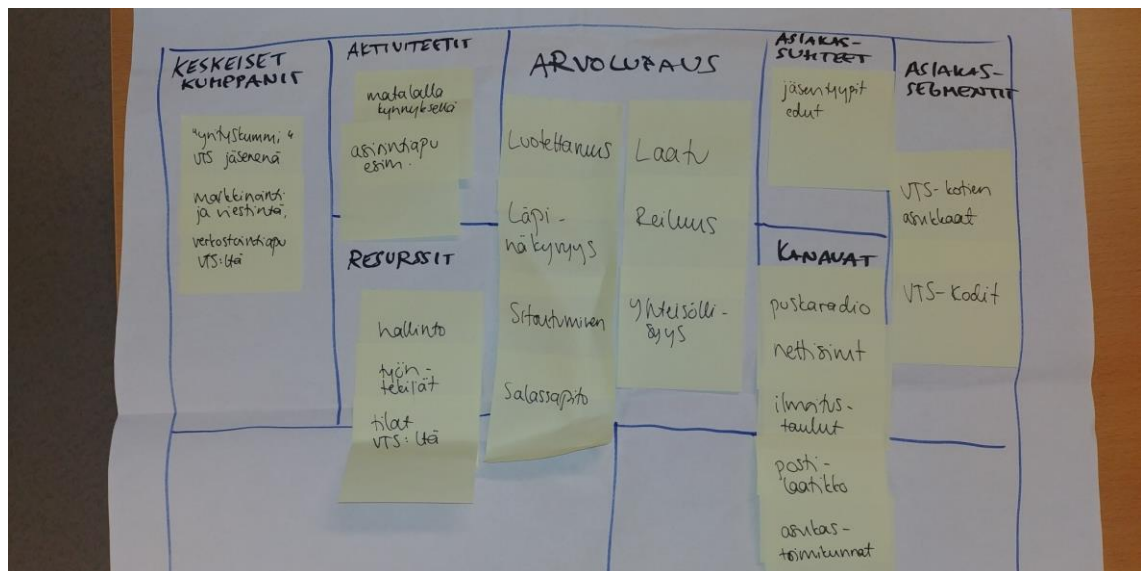 KESKEISET
KUMPPANIT
"yrityskummi"
VTS jäsenenä
markkinointi
ja viestintä,
verkostointiapu
VTS:ltä
AKTIVITEETIT
matalalla
kynnyksellä
asiointiapu
esim.
RESURSSIT
hallinto
työn-
tekijät
tilat
VTS:ltä
ARVOLUPAUS
Luotettavuus
Läpi-
näkyvyys
Sitoutuminen
Salassapito
Laatu
Reiluus
Yhteisölli-
syys
ASIAKAS-
SUHTEET
jäsentyypit
edut
KANAVAT
puskaradio
nettisivut
ilmoitus-
taulut
posti-
laatikko
asukas-
toimikunnat
ASIAKAS-
SEGMENTIT
VTS-kotien
asukkaat
VTS-Kodit